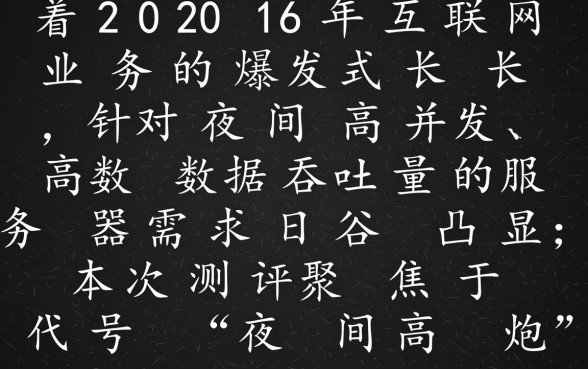 着2020 16年互联网
业务的爆发式长 长
，针对夜间 高并发、
高数 数据吞吐量的服
务 器需求日谷 凸显；
本次测评聚 焦于
代号 “夜 间高 炮”